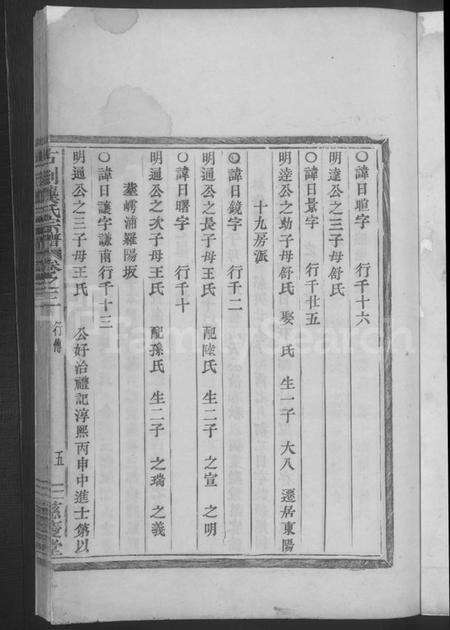 ○諱曰暄字　行千十六
明達公之三子母舒氏
○諱曰景字　行千廿五
明達公之幼子母舒氏　娶　氏　生一子　大八　遷居東陽
十九房派
○諱曰鏡字　行千二
明通公之長子母王氏　配陸氏　生二子　之宣　之明
○諱曰曙字　行千十
明通公之次子母王氏　配孫氏　生二子　之瑞　之義
葬崿浦羅陽坂
○諱曰讓字謙甫行千十三
明通公之三子母王氏　公好治禮記淳熙丙申中進士第以
氏宗譜　卷之三　行傳　五
FamilySearch